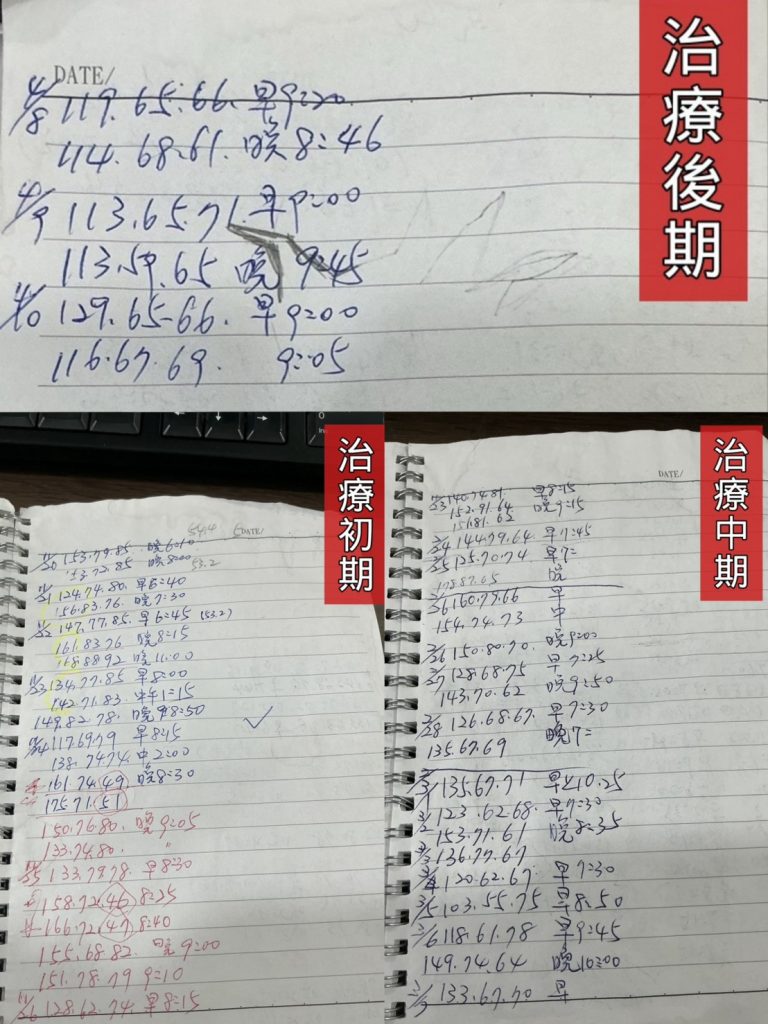 治療後期
DATE/
4/8 119.65.66. 早9=20
114.68.61. 晚8=46
4/9 113.65.71. 早9=00
113.59.65 晚 9=45
4/10 129.65-66. 早9=00
116.67.69. 9=05
治療初期
DATE/
153.79.85. 晚6=10
153.72.85 晚8=00
53.2
124.74.80. 早6=40
156.83.76. 晚7=30
147.77.85. 早6=45 (53.2)
161.8376 晚8=15
晚11=00
134.77.85 早8=00
142.71.83. 中午1=15
149.82.78. 晚8=50
117.69.79 早8=15
138.74.74. 中2=00
161.74.49. 晚8=30
175.71.51
150.76.80. 晚9=05
133.74.80. "
133.79.78. 早8=30
158.72.46 8=25
166.72.47 8=40
155.68.82. 晚9=00
151.78.79 9=10
11/26 128.62.74. 早8=15
治療中期
DATE/
2/23 140.74.81. 早8=15
152.91.64 晚9=15
151.81.62
2/24 144.79.64. 早7=45
2/25 125.70.74 早7=
晚
160.79.66 早
154.74.73 中
2/26 150.80.70. 晚9=00
2/27 128.68.75 早7=25
143.70.62 晚9=50
2/28 126.68.67. 早7=30
135.67.69 晚7=
3/1 135.67.71 早10.25
3/2 123.62.68. 早7=30
153.71.61 晚8=35
3/3 136.77.67
3/4 120.62.67. 早7=30
3/5 103.55.75 早8.50
3/6 118.61.78 早9=45
149.74.64 晚10=00
3/7 133.67.70 早